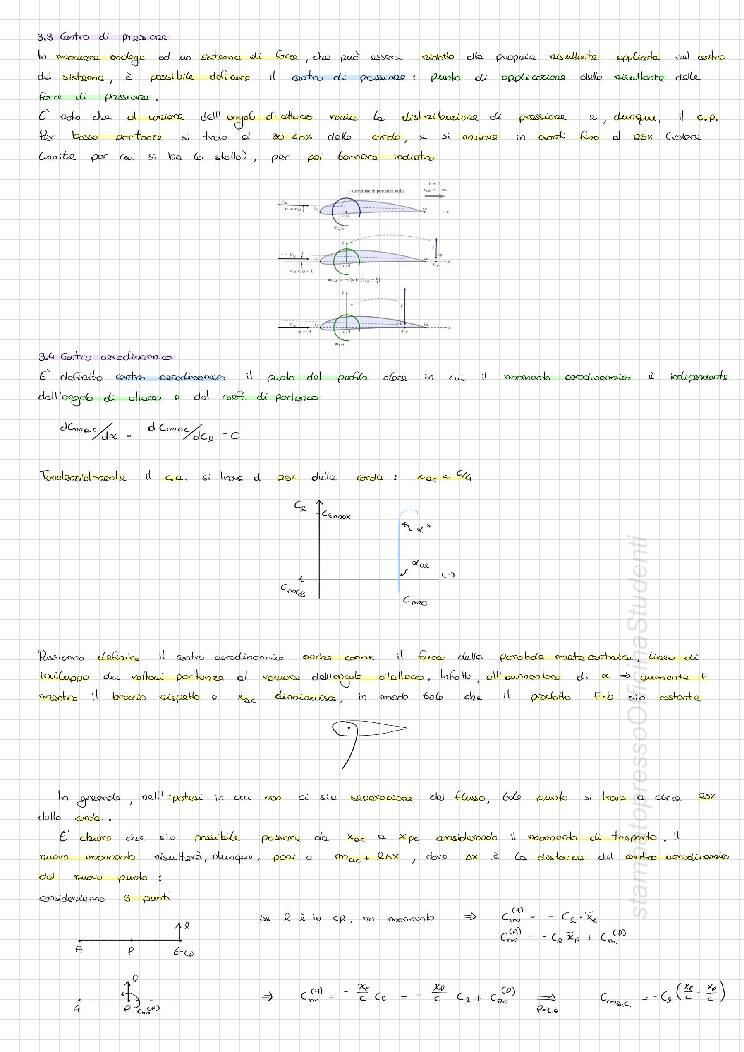 3.3 Centro di pressione
In maniera analoga ad un sistema di forze, che può essere ridotto alla propria risultante applicata nel centro
del sistema, è possibile definire il centro di pressione: punto di applicazione della risultante delle
forze di pressione.
È noto che al variare dell'angolo di attacco varia la distribuzione di pressione e, dunque, il c.p.
Per basse portanze si trova al 30-40% della corda, e si muove in avanti fino al 25% (valore
limite per cui si ha lo stallo), per poi tornare indietro
direzione di portanza nulla
3.4 Centro aerodinamico
È definito centro aerodinamico il punto del profilo alare in cui il momento aerodinamico è indipendente
dall'angolo di attacco e dal coeff. di portanza
dCmac/dα = dCmac/dCl = 0
Tendenzialmente il c.a. si trova al 25% della corda: xac = c/4
Cl
Clmax
α*
α0l
Cm0
Possiamo definire il centro aerodinamico anche come il fuoco della parabola metacentrica, linea di
inviluppo dei vettori portanza al variare dell'angolo d'attacco. Infatti, all'aumentare di α ⇒ aumenta F
mentre il braccio rispetto a xac diminuisce, in modo tale che il prodotto F·b sia costante
In generale, nell'ipotesi in cui non ci sia separazione del flusso, tale punto si trova a circa 25%
della corda.
È chiaro che sia possibile passare da xac a xpc considerando il momento di trasporto. Il
nuovo momento risulterà, dunque, pari a mac + lΔx, dove Δx è la distanza del centro aerodinamico
dal nuovo punto:
consideriamo 3 punti
se l è in CP, no momento ⇒ Cm(A) = - Cl · x̄c
Cm(A) = - Cl x̄p + Cm(P)
l
A P C=CP
l
A P Cm(P)
⇒ Cm(A) = - xc/c Cl = - xp/c Cl + Cm(P) ⇒ P=c.a. Cma.c. = -Cl (xc/c - xp/c)
stampatopressoOfficinaStudenti